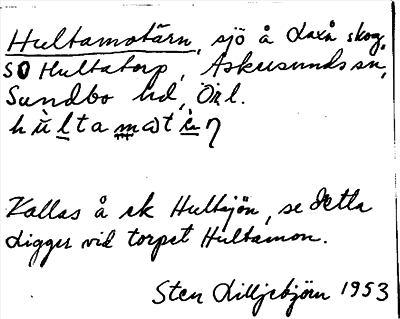 Hultamotärn, sjö å Laxå skog,
SO Hultatorp, Askersunds sn,
Sundbo hd, Ör l.
Kallas å ek Hultsjön, se detta
Ligger vid torpet Hultamon.
Sten Lilljebjörn 1953